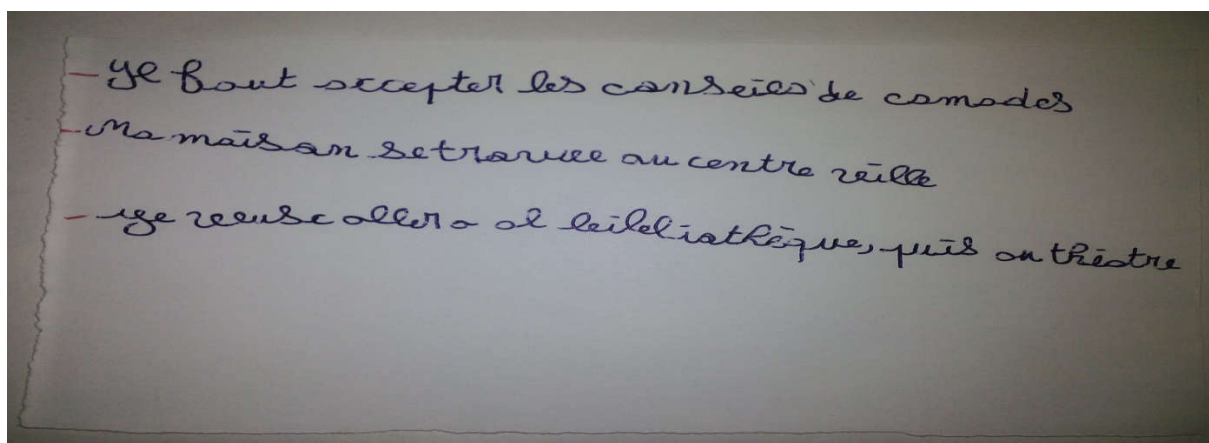 - Il faut accepter les conseils de comodes
- Ma maison se trouve au centre ville
- je veuse aller a al bibliothèque, puis au théatre